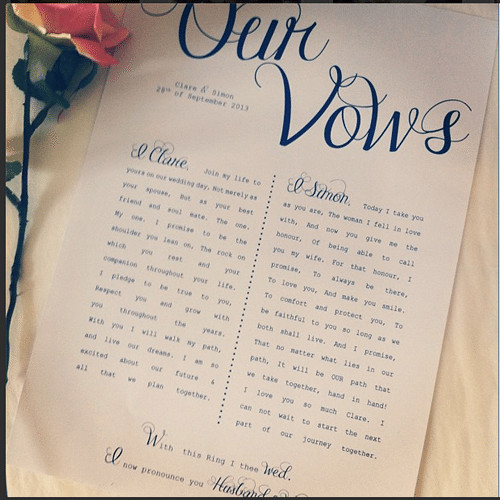 Our
Vows
Clare & Simon
28TH of September 2013
I Clare, Join my life to
yours on our wedding day, Not merely as
your spouse, But as your best
friend and soul mate. The one.
My one. I promise to be the
shoulder you lean on, The rock on
which you rest and your
companion throughout your life.
I pledge to be true to you,
Respect you and grow with
you throughout the years.
With you I will walk my path,
and live our dreams. I am so
excited about our future &
all that we plan together.
I Simon, Today I take you
as you are, The woman I fell in love
with, And now you give me the
honour, of being able to call
you my wife. For that honour, I
promise, To always be there,
To love you, And make you smile.
To comfort and protect you, To
be faithful to you so long as we
both shall live. And I promise,
That no matter what lies in our
path, It will be OUR path that
we take together, hand in hand!
I love you so much Clare. I
can not wait to start the next
part of our journey together.
With this Ring I thee wed.
I now pronounce you Husband